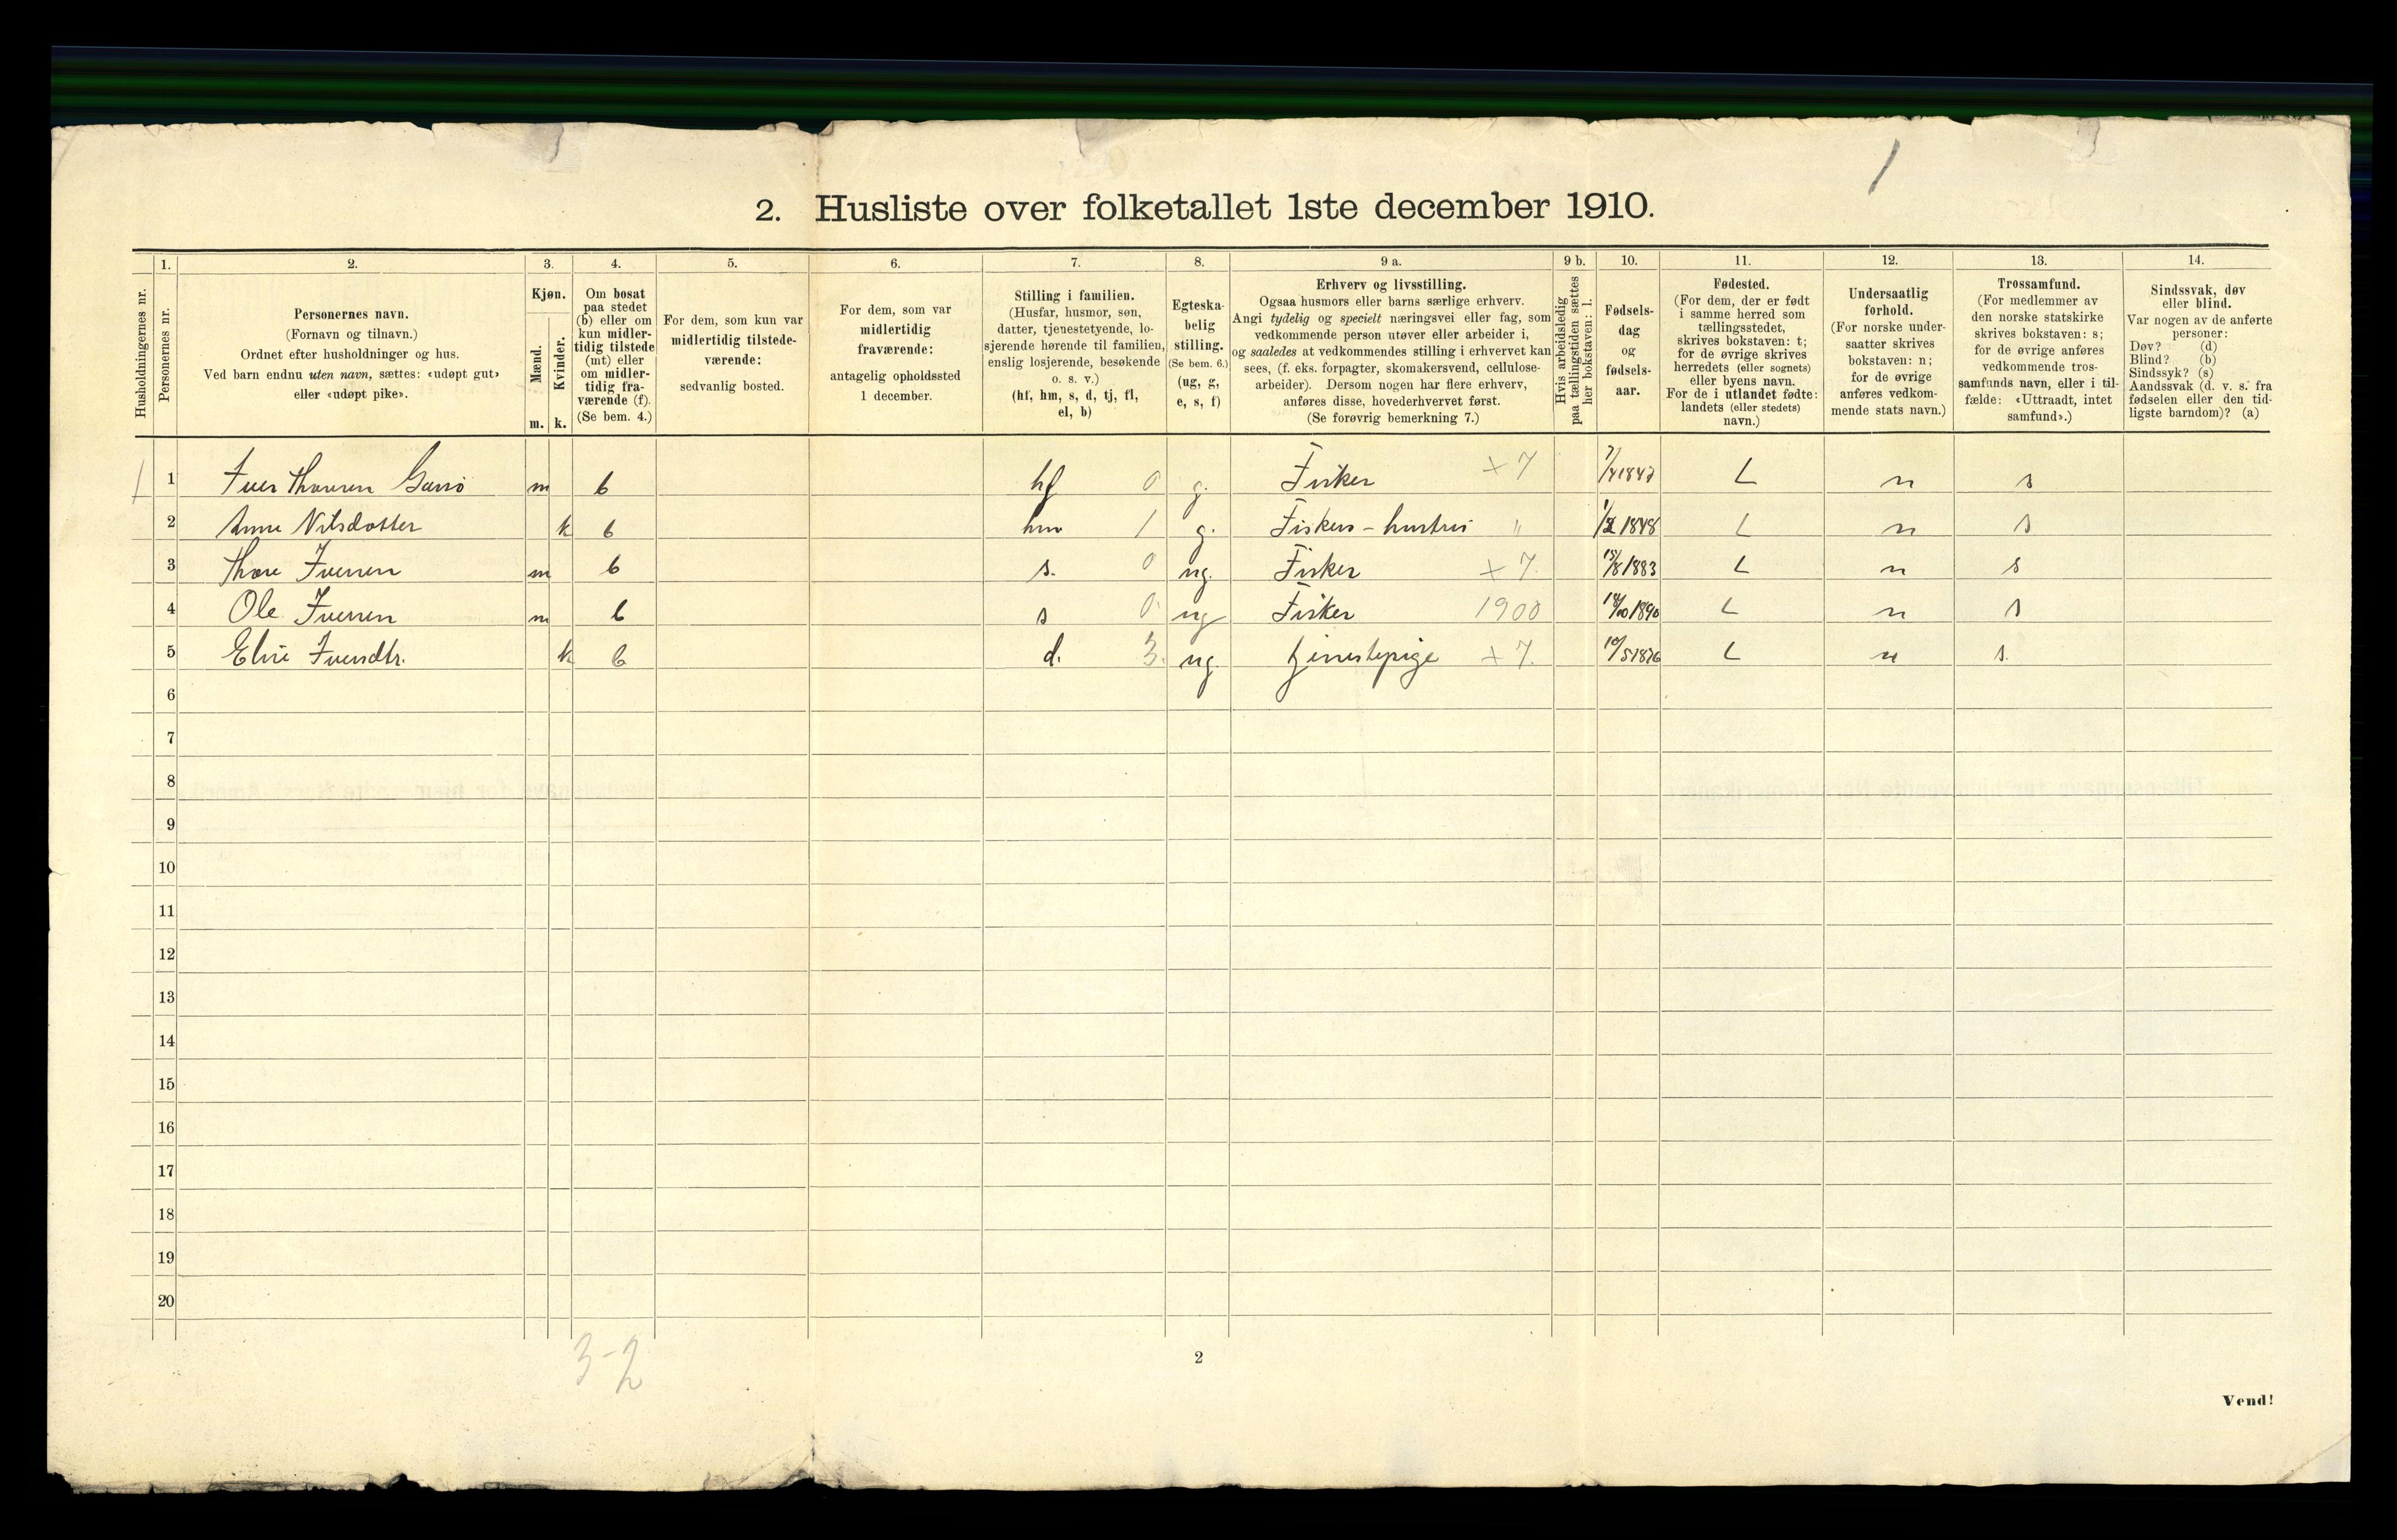 1
2. Husliste over folketallet 1ste december 1910.
Husholdningernes nr.
1.
Personernes nr.
2.
Personernes navn.
(Fornavn og tilnavn.)
Ordnet efter husholdninger og hus.
Ved barn endnu uten navn, sættes: «udøpt gut»
eller «udøpt pike».
3.
Kjøn.
Mænd.
Kvinder.
m. k.
4.
Om bosat
paa stedet
(b) eller om
kun midler-
tidig tilstede
(mt) eller
om midler-
tidig fra-
værende (f).
(Se bem. 4.)
5.
For dem, som kun var
midlertidig tilstede-
værende:
sedvanlig bosted.
6.
For dem, som var
midlertidig
fraværende:
antagelig opholdssted
1 december.
7.
Stilling i familien.
(Husfar, husmor, søn,
datter, tjenestetyende, lo-
sjerende hørende til familien,
enslig losjerende, besøkende
o. s. v.)
(hf, hm, s, d, tj, fl,
el, b)
8.
Egteska-
belig
stilling.
(Se bem. 6.)
(ug, g,
e, s, f)
9 a.
Erhverv og livsstilling.
Ogsaa husmors eller barns særlige erhverv.
Angi tydelig og specielt næringsvei eller fag, som
vedkommende person utøver eller arbeider i,
og saaledes at vedkommendes stilling i erhvervet kan
sees, (f. eks. forpagter, skomakersvend, cellulose-
arbeider). Dersom nogen har flere erhverv,
anføres disse, hovederhvervet først.
(Se forøvrig bemerkning 7.)
9 b.
Hvis arbeidsledig
paa tællingstiden sættes
her bokstaven: l.
10.
Fødsels-
dag
og
fødsels-
aar.
11.
Fødested.
(For dem, der er født
i samme herred som
tællingsstedet,
skrives bokstaven: t;
for de øvrige skrives
herredets (eller sognets)
eller byens navn.
For de i utlandet fødte:
landets (eller stedets)
navn.)
12.
Undersaatlig
forhold.
(For norske under-
saatter skrives
bokstaven: n;
for de øvrige
anføres vedkom-
mende stats navn.)
13.
Trossamfund.
(For medlemmer av
den norske statskirke
skrives bokstaven: s;
for de øvrige anføres
vedkommende tros-
samfunds navn, eller i til-
fælde: «Uttraadt, intet
samfund».)
14.
Sindssvak, døv
eller blind.
Var nogen av de anførte
personer:
Døv? (d)
Blind? (b)
Sindssyk? (s)
Aandssvak (d. v. s. fra
fødselen eller den tid-
ligste barndom)? (a)
1 1 Iver Thoresen m b hf 0 g. Fisker + 7 n s
2 Anne Nilsdotter k b hm 1 g. Fiskers-hustru " 1848 n s
3 Thore Iversen m b s. 0 ug. Fisker + 7. 1883 n s
4 Ole Iversen m b s 0 ug Fisker 1900 1890 n s
5 Iversdtr. k b d. 3. ug. tjenestepige + 7. 1876 n s.
6
7
8
9
10
11
12
13
14
15
16
17
18
19
20
3-2
2
Vend!